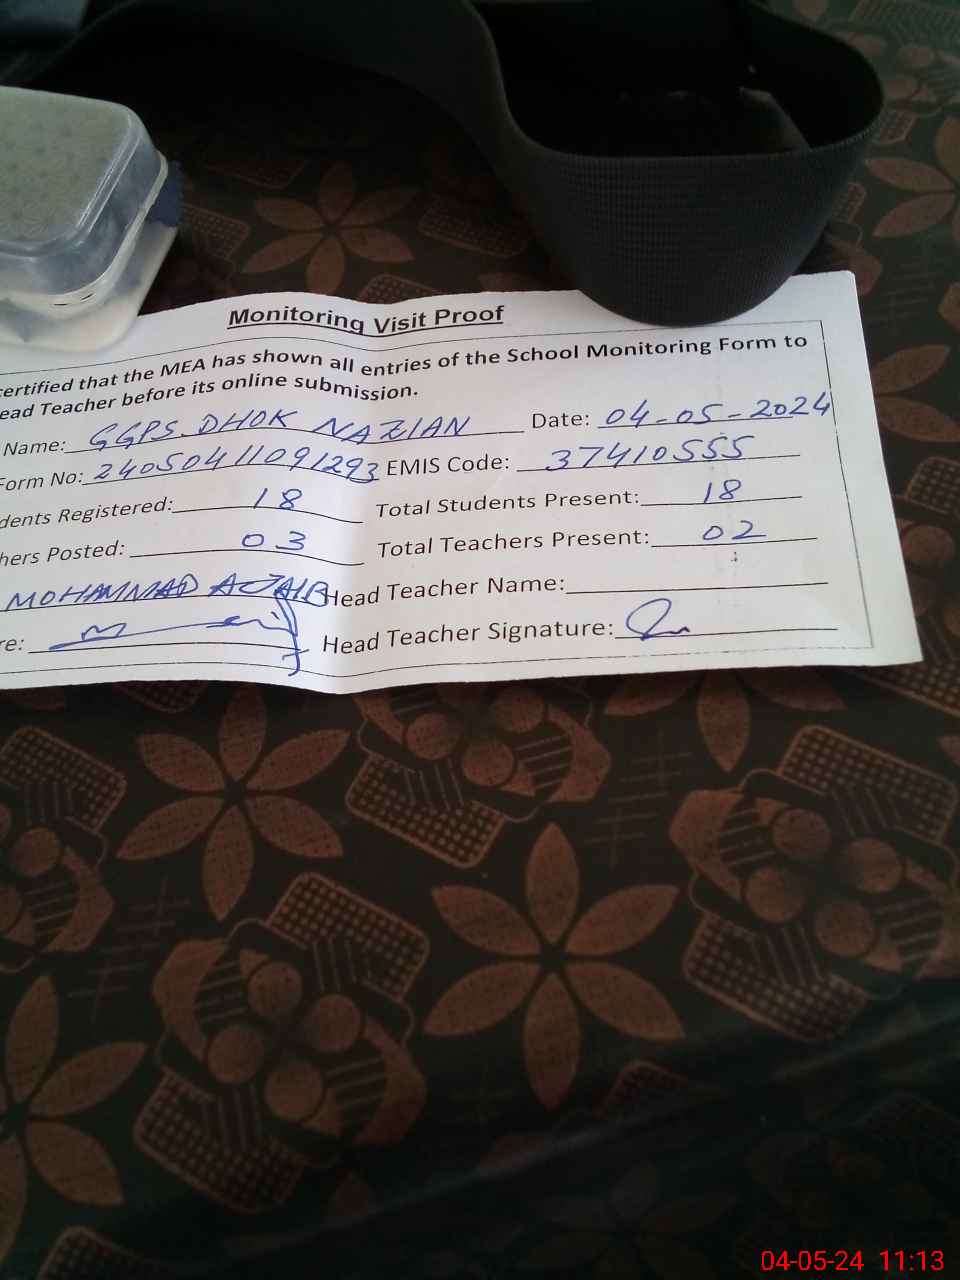 Monitoring Visit Proof
certified that the MEA has shown all entries of the School Monitoring Form to
ead Teacher before its online submission.
Name: GGPS. DHOK NAZIAN Date: 04-05-2024
Form No: 24050411091293 EMIS Code: 37410555
dents Registered: 18 Total Students Present: 18
hers Posted: 03 Total Teachers Present: 02
MOHAMMAD AJAIB Head Teacher Name:
re: Head Teacher Signature:
04-05-24 11:13